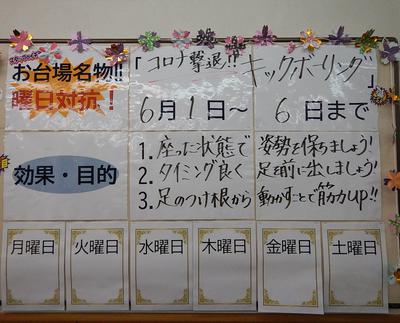 お台場名物!!
曜日対抗！
「コロナ撃退!! キックボーリング」
6月1日〜6日まで
効果・目的
1. 座った状態で 姿勢を保ちましょう!
2. タイミング良く 足を前に出しましょう!
3. 足のつけ根から 動かすことで筋力up!!
月曜日 火曜日 水曜日 木曜日 金曜日 土曜日